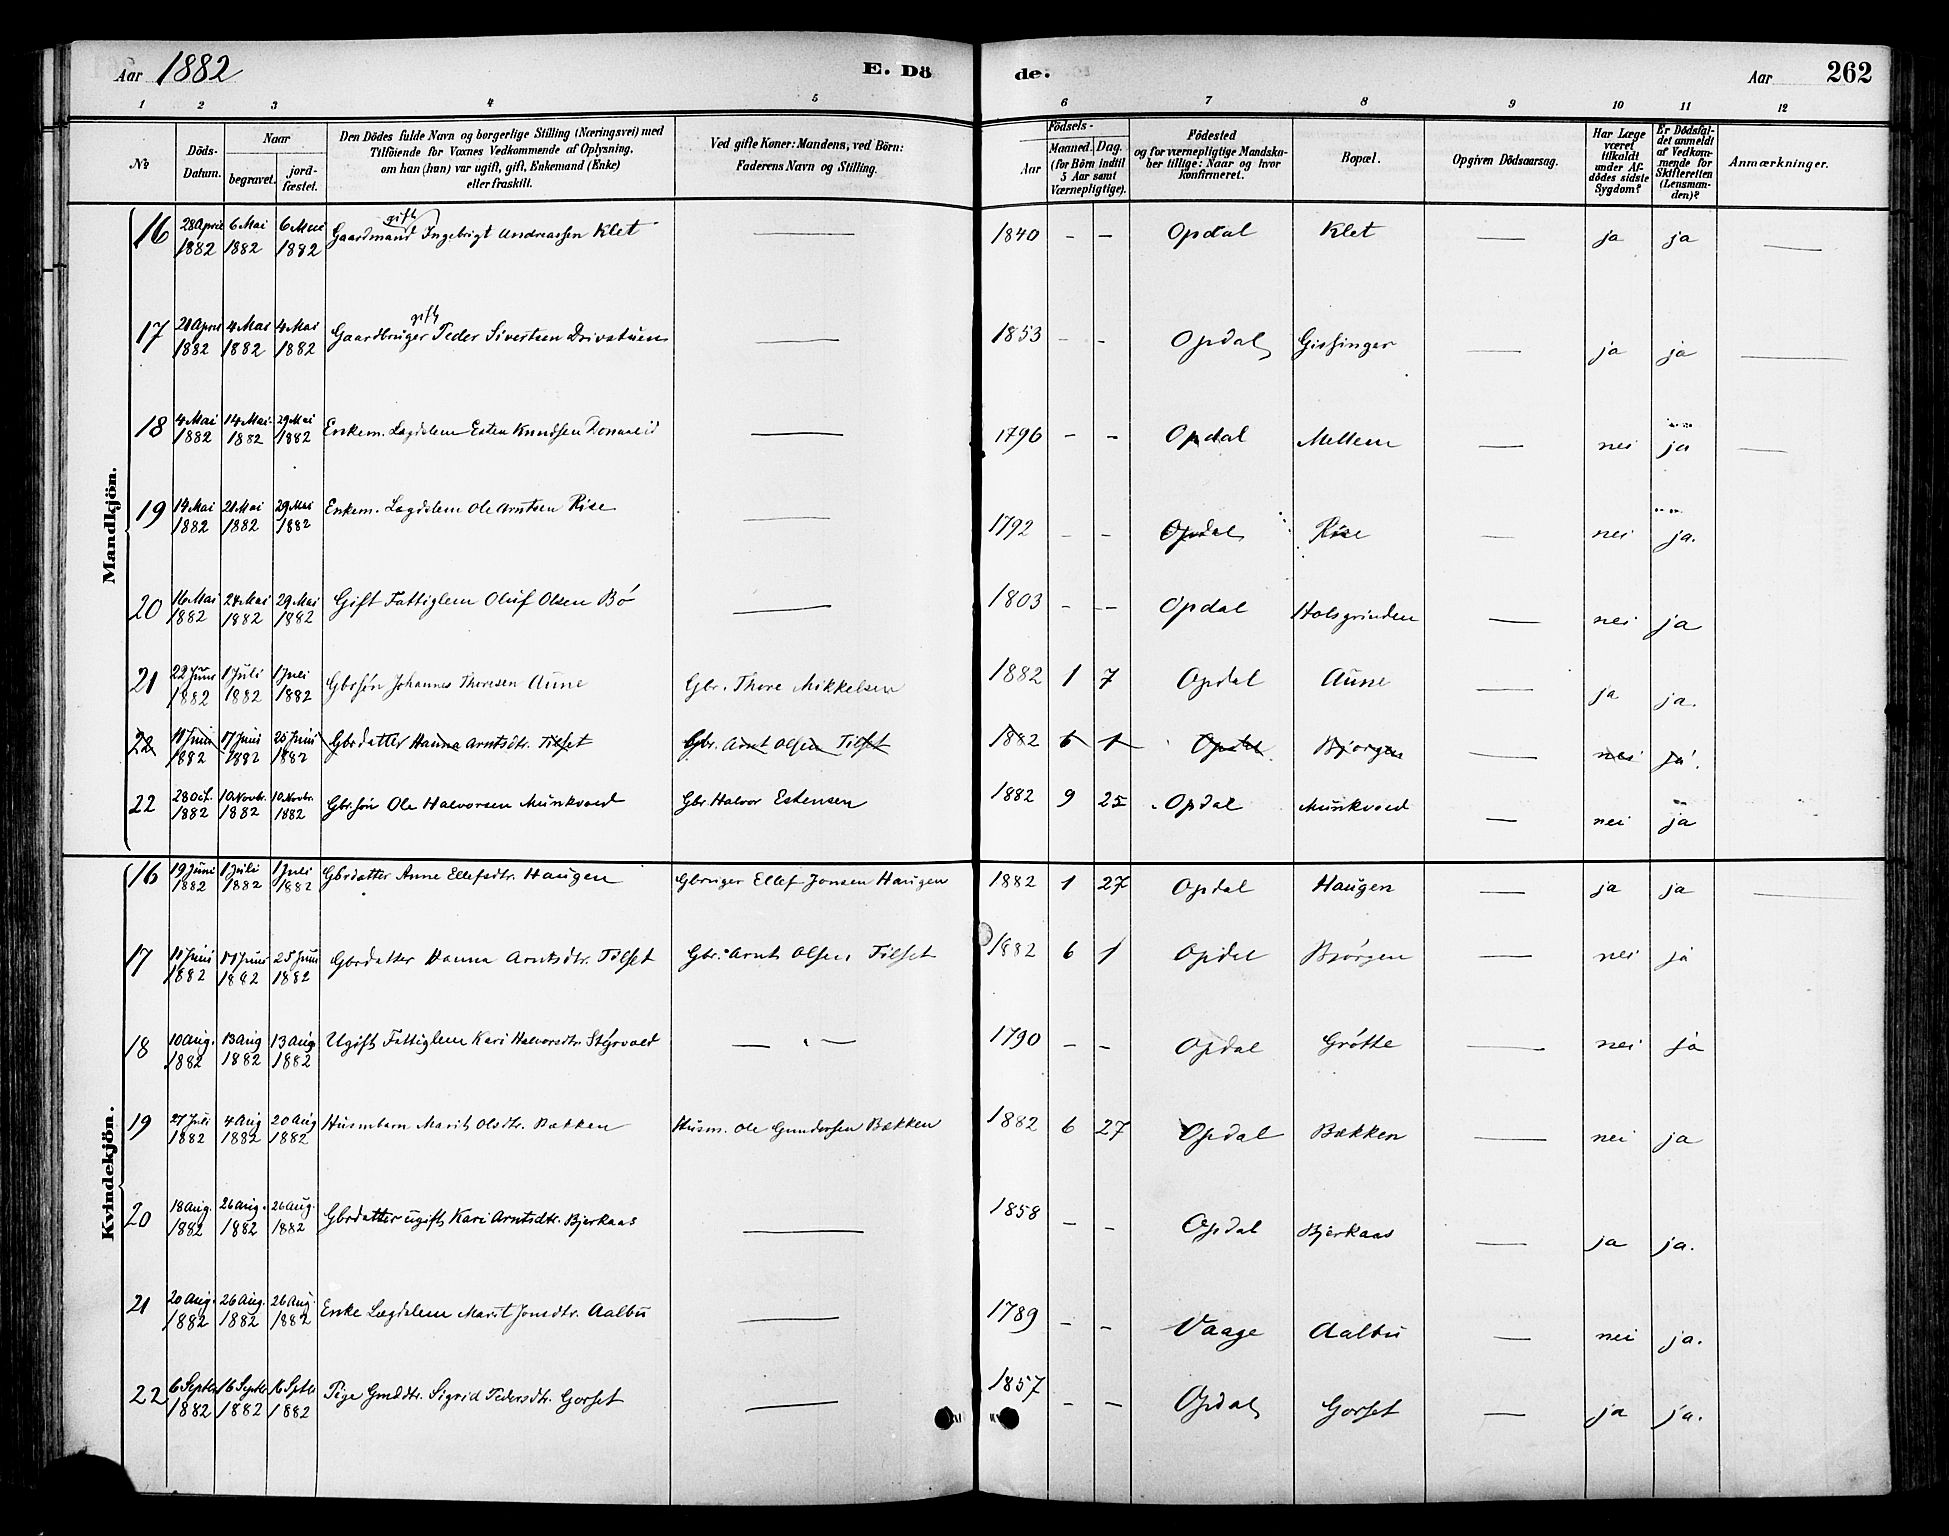 Aar 1882 E. Dö de. Aar 262
1 2 3 4 5 6 7 8 9 10 11 12
No Döds-Datum. Naar begravet. jordfæstet. Den Dödes fulde Navn og borgerlige Stilling (Næringsvei) med Tilföiende for Voxnes Vedkommende af Oplysning, om han (hun) var ugift, gift, Enkemand (Enke) eller fraskilt. Ved gifte Koner: Mandens, ved Börn: Faderens Navn og Stilling. Födsels- Aar Maaned. Dag. (for Börn indtil 5 Aar samt Værnepligtige). Födested og for værnepligtige Mandskaber tillige: Naar og hvor konfirmeret. Bopæl. Opgiven Dödsaarsag. Har Læge været tilkaldt under Afdödes sidste Sygdom? Er Dödsfaldet anmeldt af Vedkommende for Skifteretten (Lensmanden)? Anmærkninger.
Mandkjön.
16 28 April 1882 6 Mai 1882 6 Mai 1882 Gaardmand gift Ingebrigt Andreassen Klet — 1840 - - Opdal Klet — ja ja —
17 21 April 1882 4 Mai 1882 4 Mai 1882 Gaardbruger gift Peder Sivertsen Drivstuen — 1853 - - Opdal Gisinger — ja ja —
18 4 Mai 1882 14 Mai 1882 29 Mai 1882 Enkem. Lægdslem Esten Knudsen — 1796 - - Opdal Mellem — nei ja —
19 14 Mai 1882 21 Mai 1882 29 Mai 1882 Enkem. Lægdslem Ole Arntsen Rise — 1792 - - Opdal Rise — nei ja.
20 16 Mai 1882 24 Mai 1882 29 Mai 1882 Gift Fattiglem Oluf Olsen Bö — 1803 - - Opdal Holsgrinden — nei ja
21 22 Juni 1882 1 Juli 1882 1 Juli 1882 Gbrsön Johannes Thoresen Aune Gbr. Thore Mikkelsen 1882 1 7 Opdal Aune — ja ja.
22 11 Juni 1882 17 Juni 1882 25 Juni 1882 Gbrdatter Hanna Arntsdtr. Tilset Gbr. Arnt Olsen Tilset 1882 6 1 Opdal Bjørgen — nei ja.
22 28 Oct. 1882 10 Novbr. 1882 10 Novbr. 1882 Gbr.sön Ole Halvorsen Munkvold Gbr. Halvor Estensen 1882 9 25 Opdal Munkvold — nei ja
Kvindekjön.
16 19 Juni 1882 1 Juli 1882 1 Juli 1882 Gbrdatter Anne Ellefsdtr. Haugen Gbruger Ellef Jonsen Haugen 1882 1 27 Opdal Haugen — ja ja —
17 11 Juni 1882 17 Juni 1882 25 Juni 1882 Gbrdatter Hanna Arntsdtr. Tilset Gbr. Arnt Olsen Tilset 1882 6 1 Opdal Bjørgen — nei ja
18 10 Aug. 1882 13 Aug 1882 13 Aug. 1882 Ugift Fattiglem Kari Halvorsdtr. Styrvold — 1790 - - Opdal Grøtte — nei ja
19 27 Juli 1882 4 Aug 1882 20 Aug 1882 Husmbarn Marit Olsdtr. Bækken Husm. Ole Gundersen Bækken 1882 6 27 Opdal Bækken — nei ja
20 18 Aug. 1882 26 Aug. 1882 26 Aug. 1882 Gbrdatter ugift Kari Arntsdtr. Bjerkaas — 1858 - - Opdal Bjerkaas — ja ja.
21 20 Aug. 1882 26 Aug. 1882 26 Aug. 1882 Enke Lægdslem Marit Jonsdtr. Aalbu — 1789 - - Vaage Aalbu — nei ja.
22 6 Septbr 1882 16 Septbr 1882 16 Sptbr 1882 Pige Gmddtr. Sigrid Pedersdtr. Gorset — 1857 - - Opdal Gorset — ja ja.